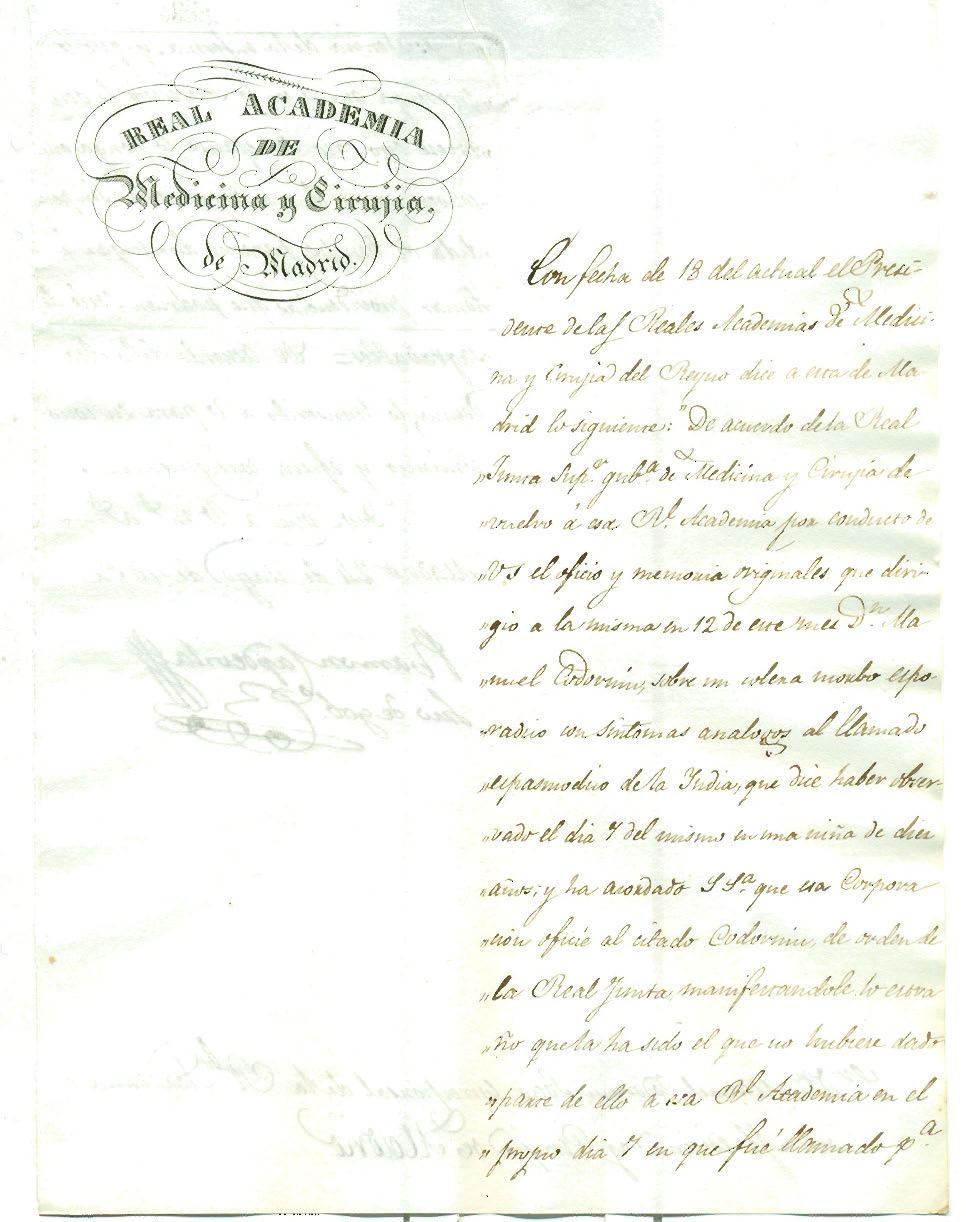 REAL ACADEMIA
DE
Medicina y Cirujia,
de Madrid.
Con fecha de 18 del actual el Presi-
dente de las Reales Academias de Medici-
na y Cirujia del Reyno dice a esta de Ma-
drid lo siguiente: "De acuerdo de la Real
"Junta Sup.r gub.a de Medicina y Cirujia de
"vuelvo á esa R.l Academia por conducto de
"VS el oficio y memoria originales que diri-
"gio a la misma en 12 de este mes D.n Ma
"nuel Codorniu, sobre un colera morbo espo-
"radico con sintomas analogos al llamado
"espasmodico de la India, que dice haber obser-
"vado el dia 7 del mismo en una niña de diez
"años; y ha acordado S S.a que esa Corpora
"cion oficie al citado Codorniu, de orden de
"la Real Junta, manifestandole lo estra
"ño que la ha sido el que no hubiese dado
"parte de ello a esa R.l Academia en el
"propio dia 7 en que fué llamado p.a